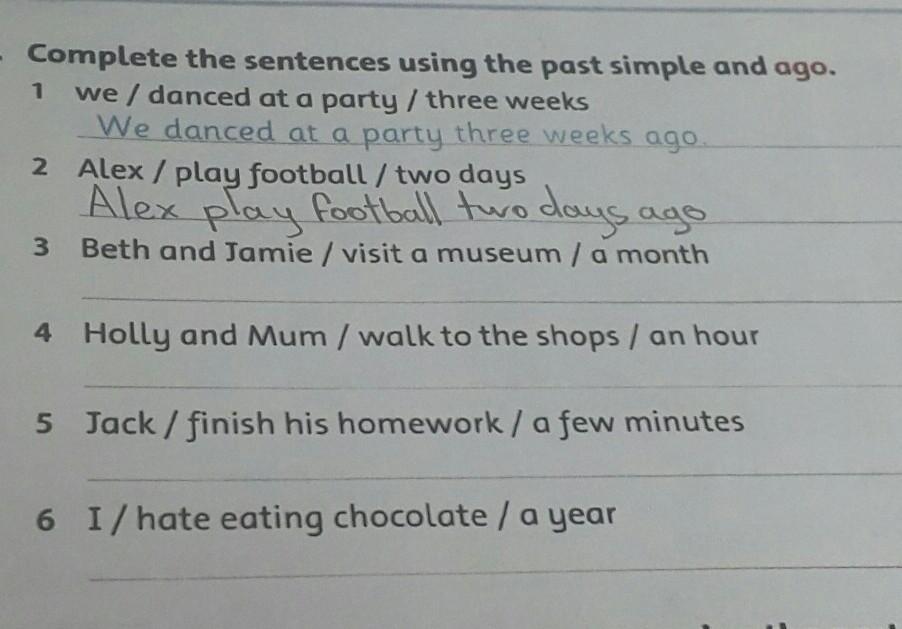 Complete the sentences using the past simple and ago.
1 we / danced at a party / three weeks
We danced at a party three weeks ago.
2 Alex / play football / two days
Alex play football two days ago
3 Beth and Jamie / visit a museum / a month
4 Holly and Mum / walk to the shops / an hour
5 Jack / finish his homework / a few minutes
6 I / hate eating chocolate / a year